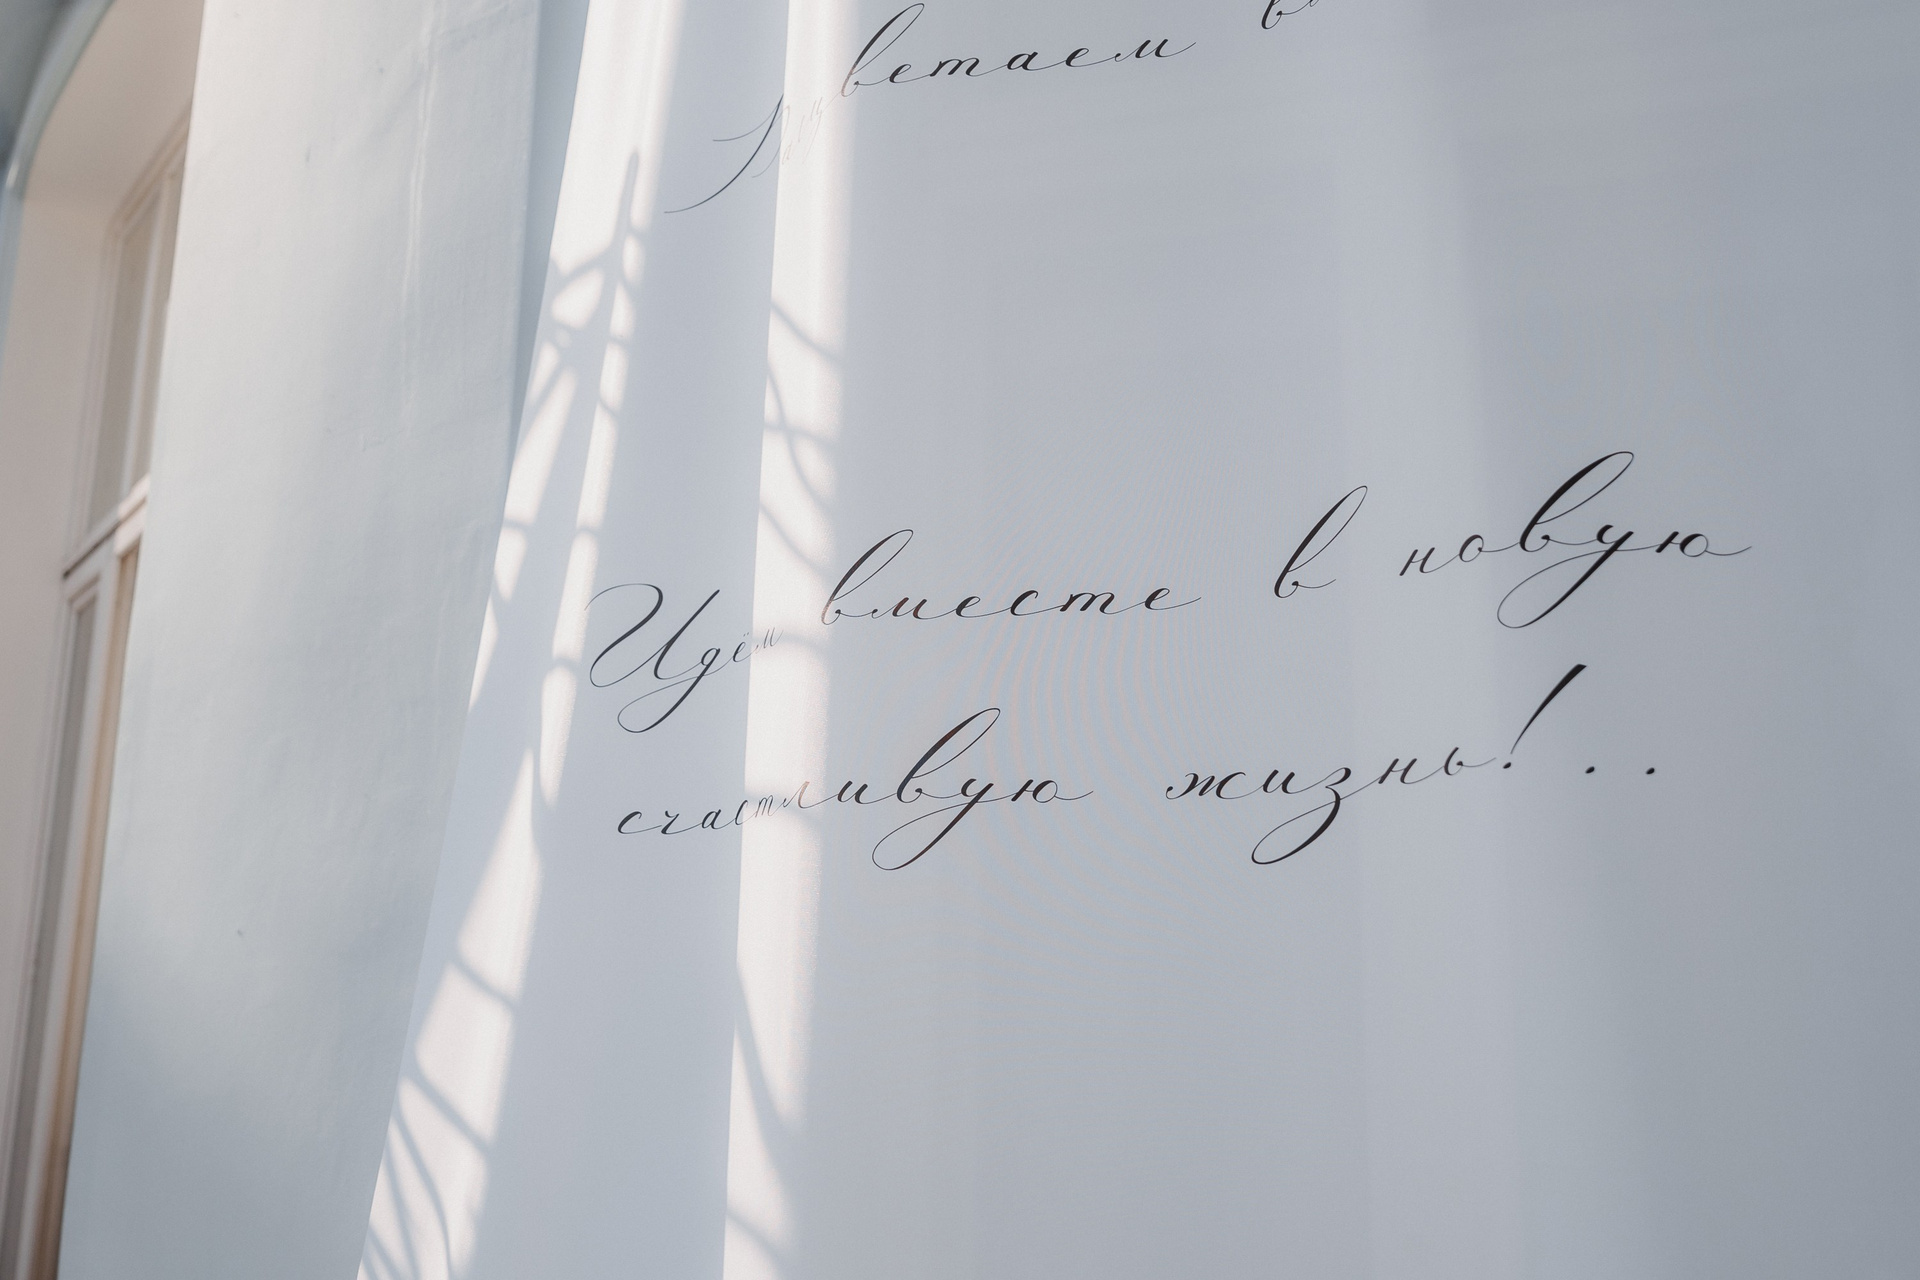 Идём вместе в новую
счастливую жизнь!..